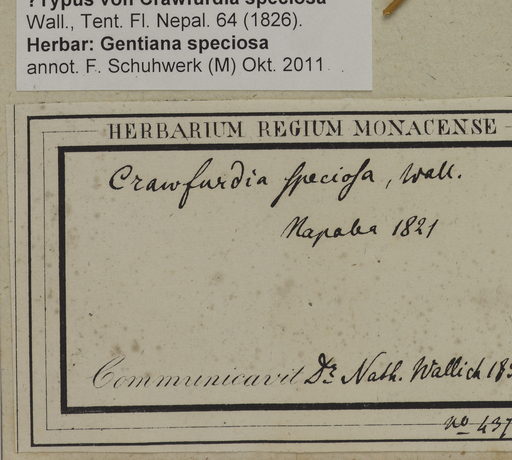 ?Typus von Crawfurdia speciosa
Wall., Tent. Fl. Nepal. 64 (1826).
Herbar: Gentiana speciosa
annot. F. Schuhwerk (M) Okt. 2011
HERBARIUM REGIUM MONACENSE
Crawfurdia speciosa, Wall.
Napala 1821
Communicavit Dr. Nath. Wallich 183
no 437